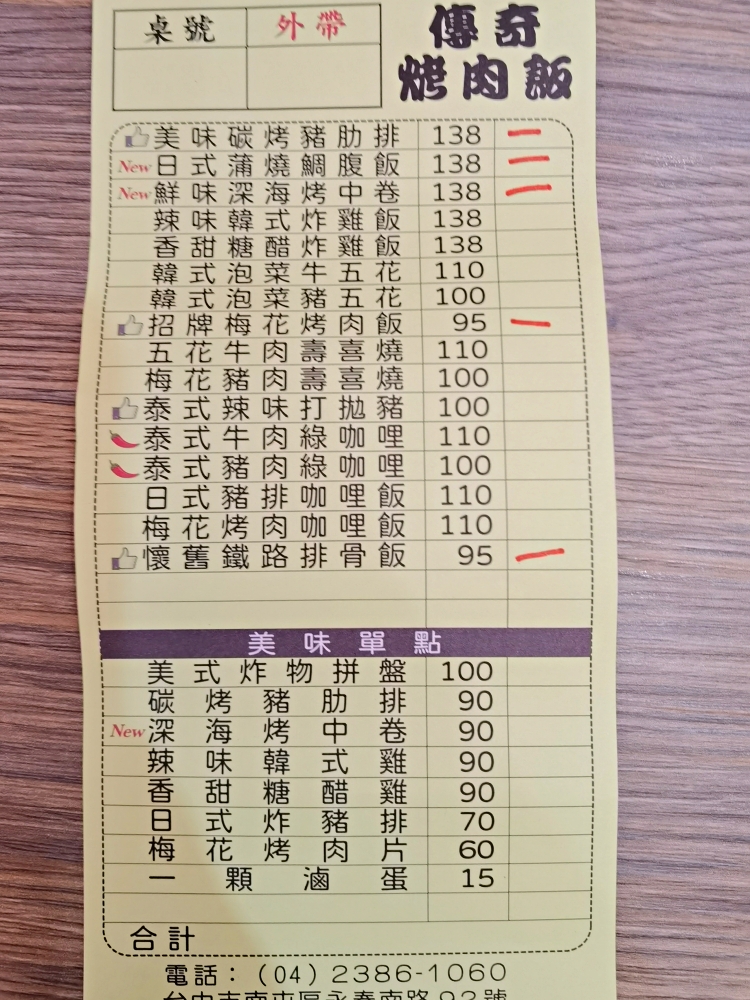 桌號 外帶
傳奇
烤肉飯
美味碳烤豬肋排 138 一
New 日式蒲燒鯛腹飯 138 一
New 鮮味深海烤中卷 138 一
辣味韓式炸雞飯 138
香甜糖醋炸雞飯 138
韓式泡菜牛五花 110
韓式泡菜豬五花 100
招牌梅花烤肉飯 95 一
五花牛肉壽喜燒 110
梅花豬肉壽喜燒 100
泰式辣味打拋豬 100
泰式牛肉綠咖哩 110
泰式豬肉綠咖哩 100
日式豬排咖哩飯 110
梅花烤肉咖哩飯 110
懷舊鐵路排骨飯 95 一
美味單點
美式炸物拼盤 100
碳烤豬肋排 90
New 深海烤中卷 90
辣味韓式雞 90
香甜糖醋雞 90
日式炸豬排 70
梅花烤肉片 60
一顆滷蛋 15
合計
電話：(04) 2386-1060
台中市南屯區永春南路92號